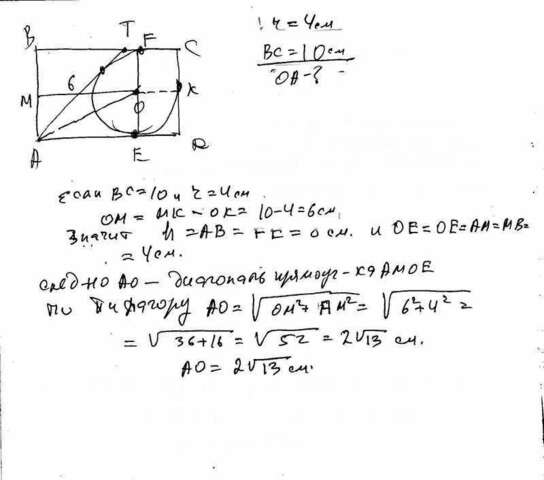 B T F C
6
M O K
A E D
r = 4см
BC = 10см
OA - ?
Если BC = 10 и r = 4см.
OM = MK - OK = 10-4 = 6см,
Значит h = AB = FE = 0 см. и OE = OE = AM = MB =
= 4см.
след-но AO - диагональ прямоуг-ка AMOE
по Пифагору AO = √OM²+AM² = √6²+4² =
= √36+16 = √52 = 2√13 см.
AO = 2√13 см.